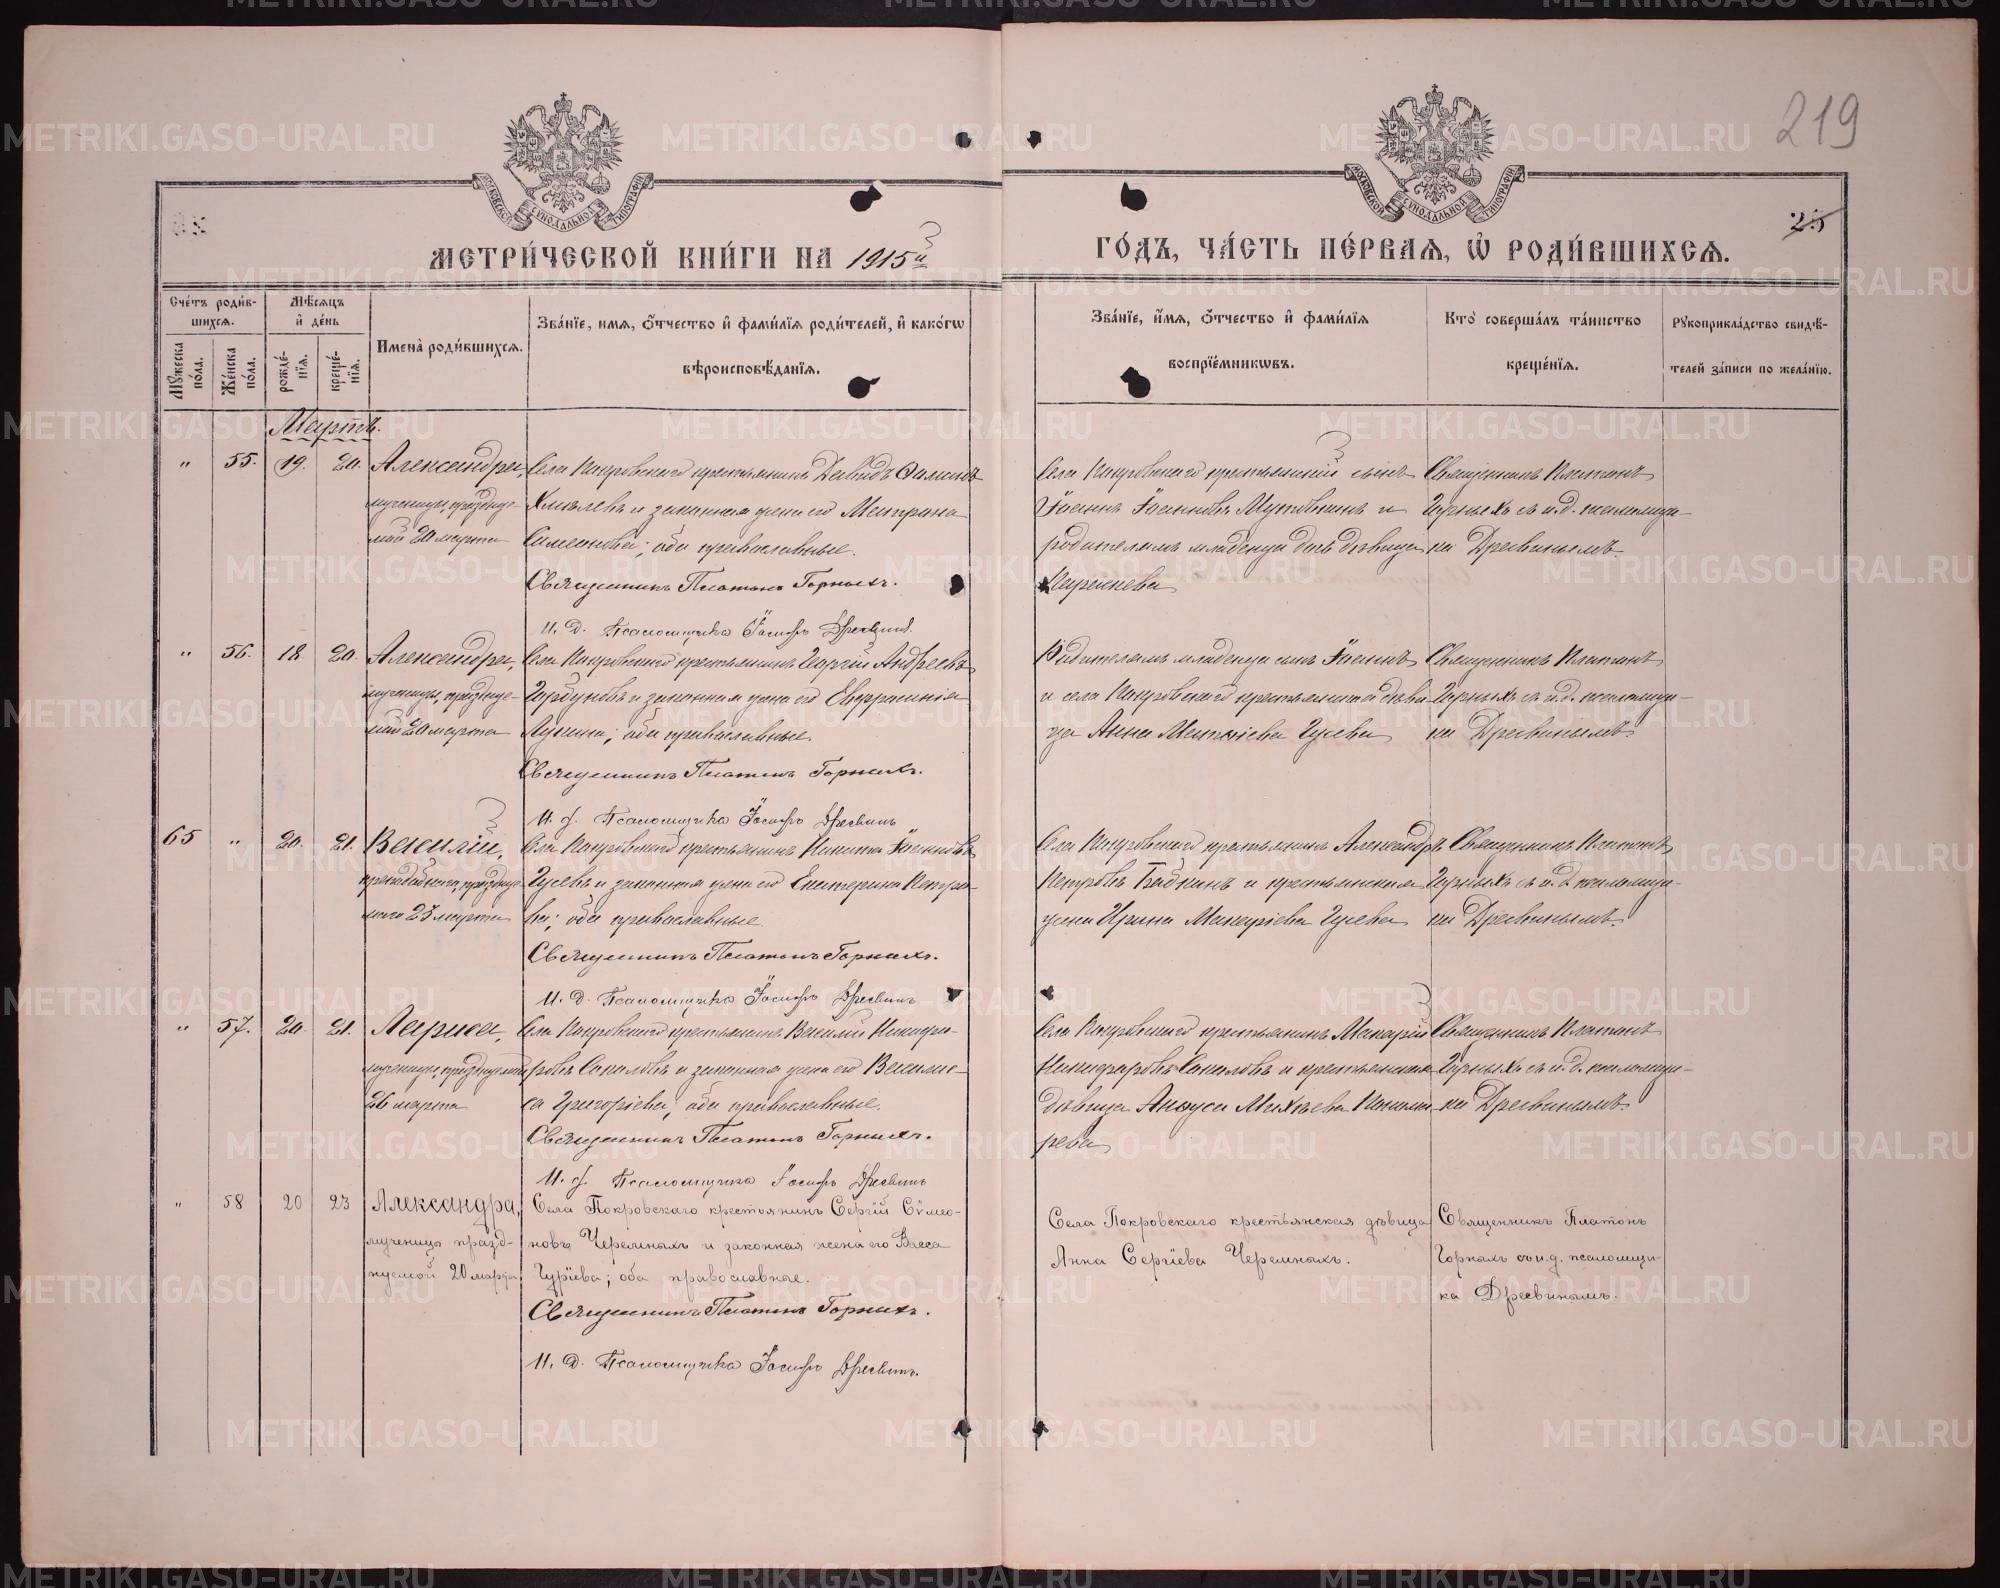 219
25
МЕТРИ́ЧЕСКОЙ КНИ́ГИ НА 1915й
ГО́ДЪ, ЧА́СТЬ ПЕ́РВАѦ, Ѽ РОДИ́ВШИХСѦ.
Сче́тъ роди́в-
шихсѧ.
Мѣ́сѧцъ
и҆ де́нь
Мꙋ́жеска по́ла.
Же́нска по́ла.
рожде́-нїѧ.
креще́-нїѧ.
И҆мена̀ роди́вшихсѧ.
Зва́нїе, имѧ, ѻ҆́тчество и҆ фами́лїѧ роди́телей, и҆ како́гѡ
вѣроисповѣ́данїѧ.
Зва́нїе, и҆́мѧ, ѻ҆́тчество и҆ фами́лїѧ
воспрїе́мникѡвъ.
Кто̀ соверша́лъ та́инство
креще́нїѧ.
Рꙋкоприкла́дство свидѣ́-
телей за́писи по жела́нїю.
Мартъ.
" 55. 19. 20. Александра,
мученицы, праздну-
мой 20 марта
Села Покровскаго крестьянинъ Давидъ
Хмѣлевъ и законная жена его Матрона
Симеонова; оба православные.
Священникъ Платонъ Горныхъ.
И. д. Псаломщика Іосифъ Дресвинъ.
Села Покровскаго крестьянскій сынъ
Іоаннъ Іоанновъ и
родителямъ младенца дочь дѣвица
Священникъ Платонъ
Горныхъ съ и.д. псаломщи-
ка Дресвинымъ.
" 56. 18. 20. Александра,
мученицы, праздну-
мой 20 марта
Села Покровскаго крестьянинъ Георгій Андреевъ
Горбуновъ и законная жена его Евфросинія
Лукина; оба православные.
Священникъ Платонъ Горныхъ.
И. д. Псаломщика Іосифъ Дресвинъ
Родителямъ младенца сынъ Іоаннъ
и села Покровскаго крестьянская дѣви
ца Анна Матѳіева Гусева
Священникъ Платонъ
Горныхъ съ и.д. псаломщи-
ка Дресвинымъ.
65 " 20. 21. Василій,
преподобнаго, праздну-
маго 23 марта
Села Покровскаго крестьянинъ Никита Іоанновъ
Гусевъ и законная жена его Екатерина Петро-
ва; оба православные.
Священникъ Платонъ Горныхъ.
И. д. Псаломщика Іосифъ Дресвинъ
Села Покровскаго крестьянинъ Александръ
Петровъ Бабкинъ и крестьянская
жена Ирина Макаріева Гусева
Священникъ Платонъ
Горныхъ съ и.д. псаломщи-
ка Дресвинымъ.
" 57. 20. 21. Лариса,
мученицы, празднуемой
26 марта
Села Покровскаго крестьянинъ Василій Никифо-
ровъ Соколовъ и законная жена его Васили-
са Григоріева; оба православные.
Священникъ Платонъ Горныхъ.
И. д. Псаломщика Іосифъ Дресвинъ
Села Покровскаго крестьянинъ Макарій
Никифоровъ Соколовъ и крестьянская
дѣвица Анѳуса Михѣева Пономо
рева
Священникъ Платонъ
Горныхъ съ и.д. псаломщи-
ка Дресвинымъ.
" 58 20 23 Александра,
мученицы празд-
нуемой 20 марта
Села Покровскаго крестьянинъ Сергій Сѵмео-
новъ Черемныхъ и законная жена его Васса
Гурїева; оба православные.
Священникъ Платонъ Горныхъ.
И. д. Псаломщика Іосифъ Дресвинъ.
Села Покровскаго крестьянская дѣвица
Анна Сергіева Черемныхъ.
Священникъ Платонъ
Горныхъ съ и.д. псаломщи-
ка Дресвинымъ.
METRIKI.GASO-URAL.RU